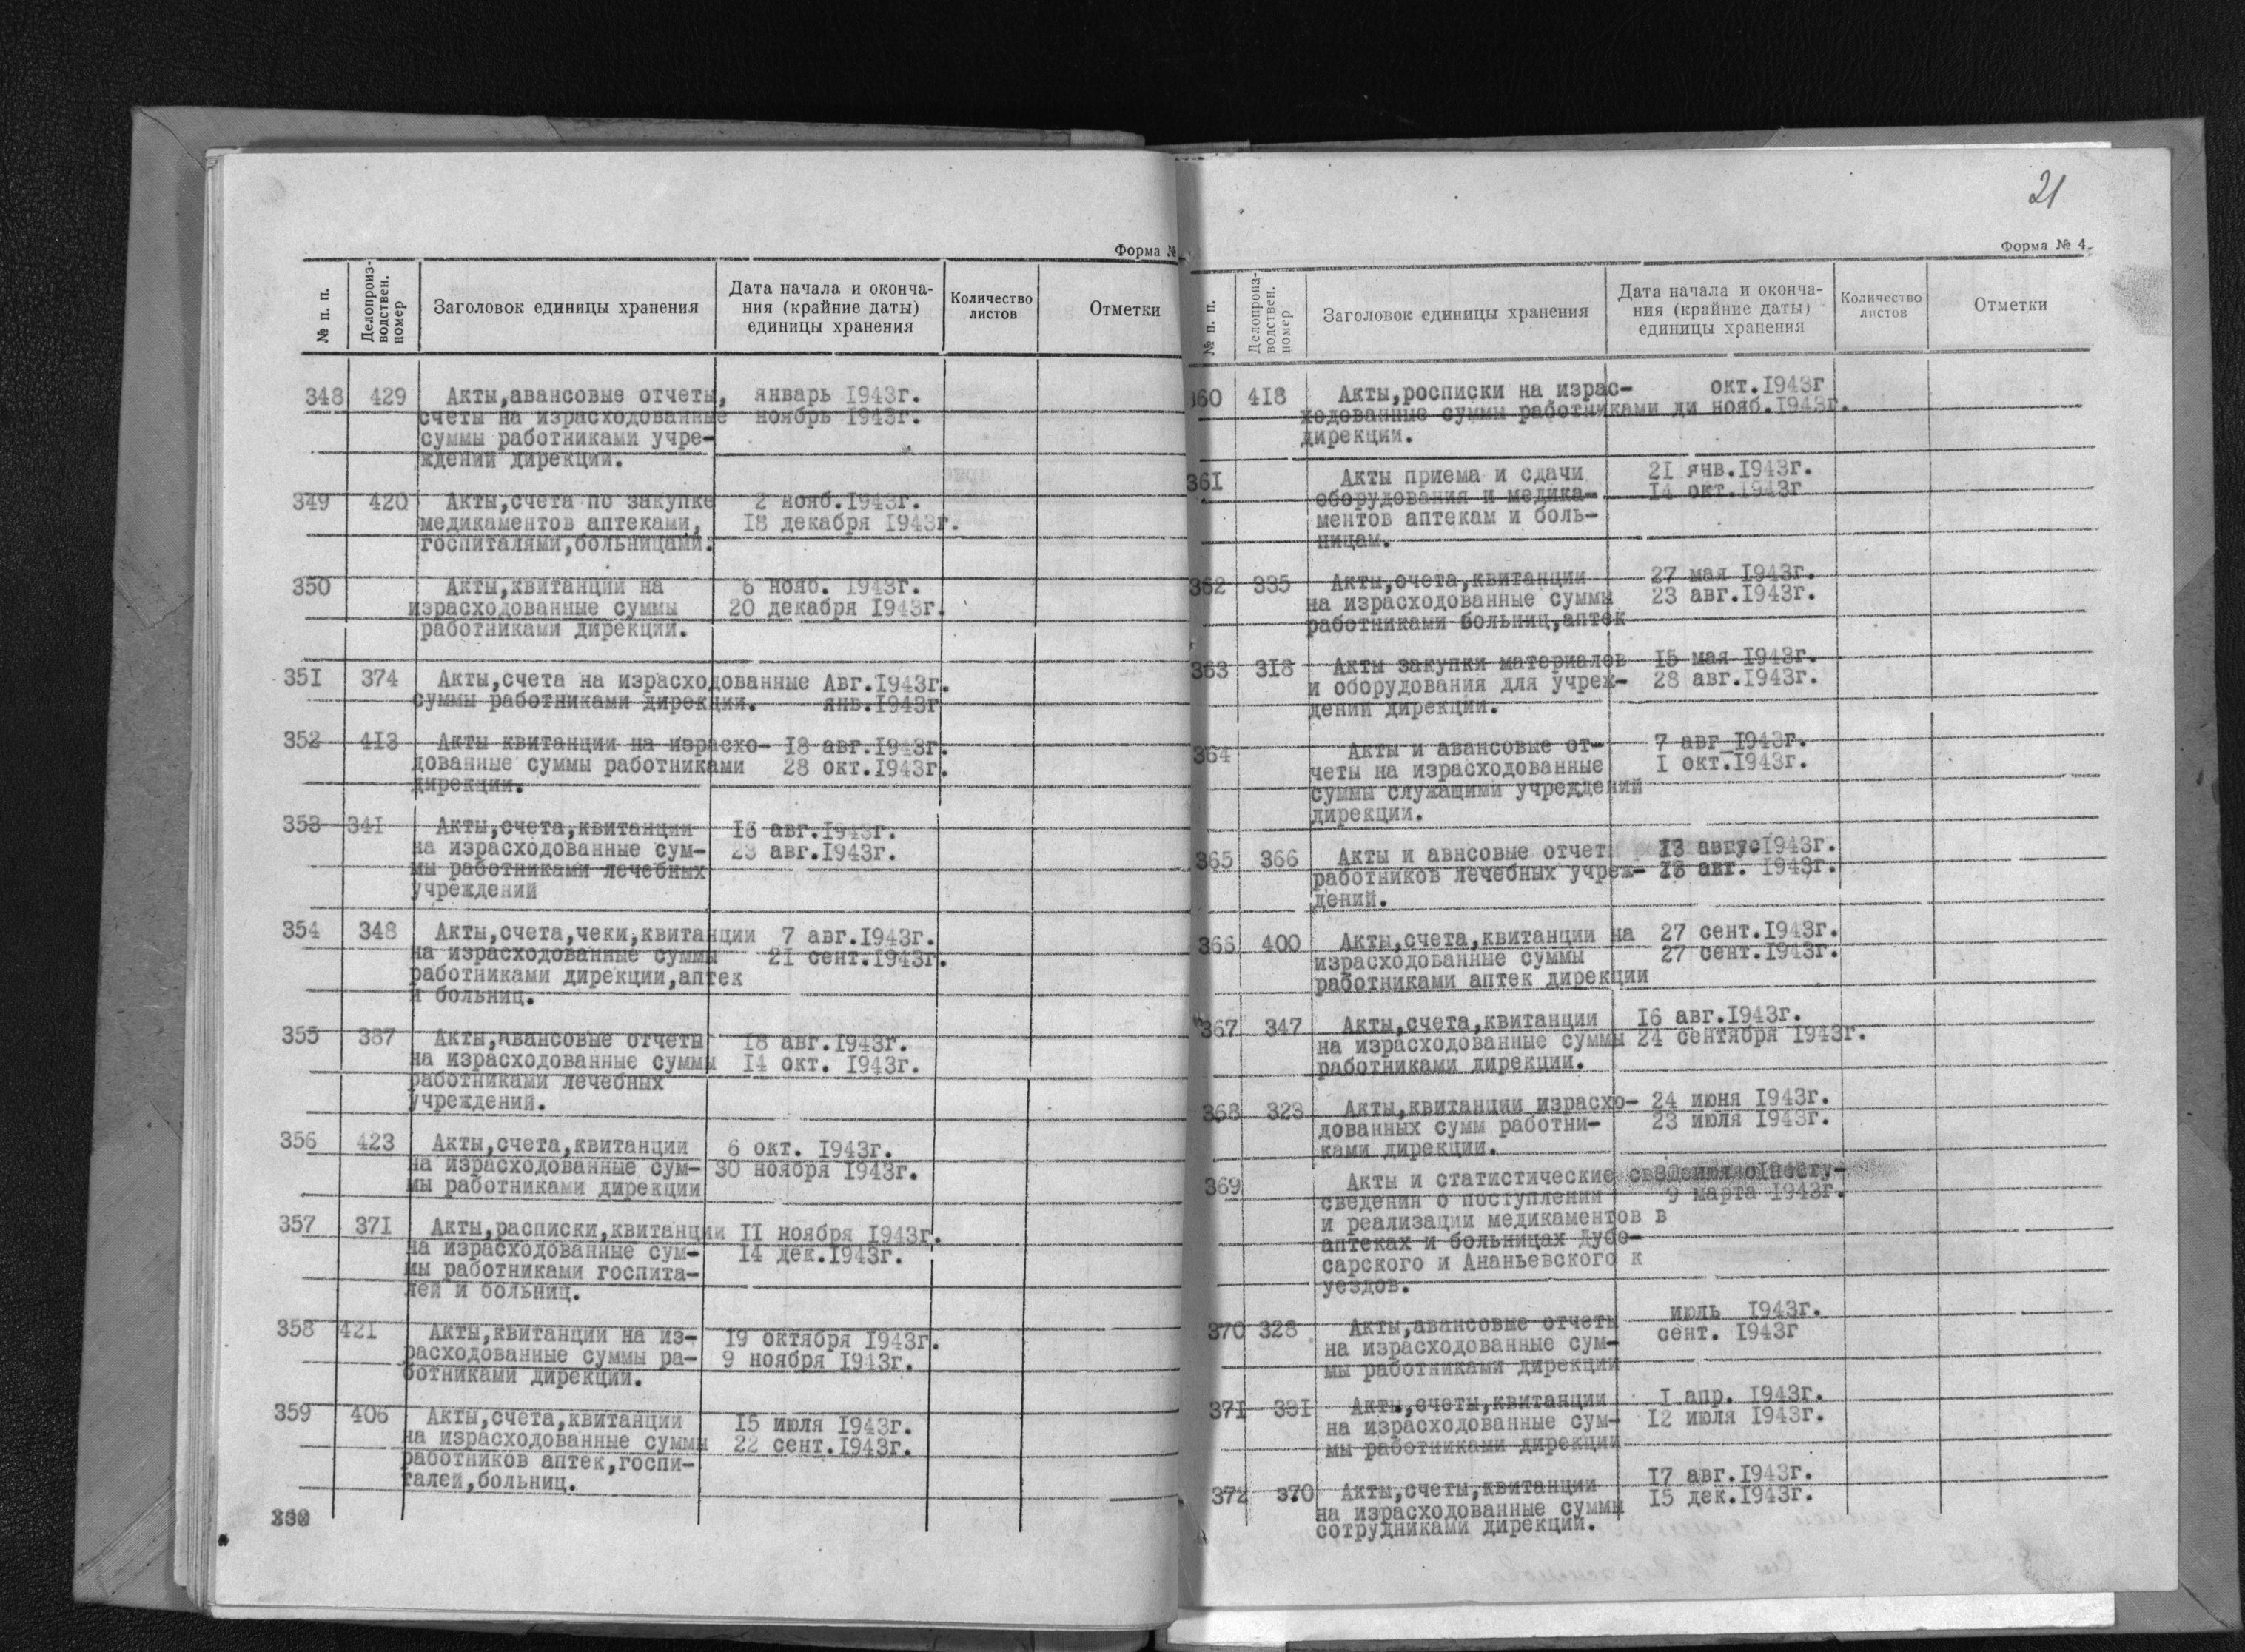 Форма №
№ п. п.
Делопроиз-
водствен.
номер
Заголовок единицы хранения
Дата начала и оконча-
ния (крайние даты)
единицы хранения
Количество
листов
Отметки
348 429 Акты,авансовые отчеты, январь 1943г.
счеты на израсходованные ноябрь 1943г.
суммы работниками учре-
ждений дирекции.
349 420 Акты,счета по закупке 2 нояб.1943г.
медикаментов аптеками, 18 декабря 1943г.
госпиталями,больницами.
350 Акты,квитанции на 6 нояб. 1943г.
израсходованные суммы 20 декабря 1943г.
работниками дирекции.
351 374 Акты,счета на израсходованные Авг.1943г.
суммы работниками дирекции. янв.1943г
352 413 Акты квитанции на израсхо- 18 авг.1943г.
дованные суммы работниками 28 окт.1943г.
дирекции.
353 341 Акты,счета,квитанции 16 авг.1943г.
на израсходованные сум- 23 авг.1943г.
мы работниками лечебных
учреждений
354 348 Акты,счета,чеки,квитанции 7 авг.1943г.
на израсходованные суммы 21 сент.1943г.
работниками дирекции,аптек
и больниц.
355 387 Акты,авансовые отчеты 18 авг.1943г.
на израсходованные суммы 14 окт. 1943г.
работниками лечебных
учреждений.
356 423 Акты,счета,квитанции 6 окт. 1943г.
на израсходованные сум- 30 ноября 1943г.
мы работниками дирекции
357 371 Акты,расписки,квитанции 11 ноября 1943г.
на израсходованные сум- 14 дек.1943г.
мы работниками госпита-
лей и больниц.
358 421 Акты,квитанции на из- 19 октября 1943г.
расходованные суммы ра- 9 ноября 1943г.
ботниками дирекции.
359 406 Акты,счета,квитанции 15 июля 1943г.
на израсходованные суммы 22 сент.1943г.
работников аптек,госпи-
талей,больниц.
21
Форма № 4.
№ п. п.
Делопроиз-
водствен.
номер
Заголовок единицы хранения
Дата начала и оконча-
ния (крайние даты)
единицы хранения
Количество
листов
Отметки
360 418 Акты,росписки на израс- окт.1943г
ходованные суммы работниками ди нояб.1943г.
дирекции.
361 Акты приема и сдачи 21 янв.1943г.
оборудования и медика- 14 окт.1943г
ментов аптекам и боль-
ницам.
362 335 Акты,счета,квитанции 27 мая 1943г.
на израсходованные суммы 23 авг.1943г.
работниками больниц,аптек
363 318 Акты закупки материалов 15 мая 1943г.
и оборудования для учреж- 28 авг.1943г.
дений дирекции.
364 Акты и авансовые от- 7 авг 1943г.
четы на израсходованные 1 окт.1943г.
суммы служащими учреждений
дирекции.
365 366 Акты и авнсовые отчеты 13 август1943г.
работников лечебных учреж- авг. 1943г.
дений.
366 400 Акты,счета,квитанции на 27 сент.1943г.
израсходованные суммы 27 сент.1943г.
работниками аптек дирекции
367 347 Акты,счета,квитанции 16 авг.1943г.
на израсходованные суммы 24 сентября 1943г.
работниками дирекции.
368 323 Акты,квитанции израсхо- 24 июня 1943г.
дованных сумм работни- 23 июля 1943г.
ками дирекции.
369 Акты и статистические
сведения о поступлении 9 марта 1943г.
и реализации медикаментов в
аптеках и больницах Дубо-
сарского и Ананьевского к
уездов.
370 328 Акты,авансовые отчеты июль 1943г.
на израсходованные сум- сент. 1943г
мы работниками дирекции
371 331 Акты,счеты,квитанции 1 апр. 1943г.
на израсходованные сум- 12 июля 1943г.
мы работниками дирекции
372 370 Акты,счеты,квитанции 17 авг.1943г.
на израсходованные суммы 15 дек.1943г.
сотрудниками дирекции.